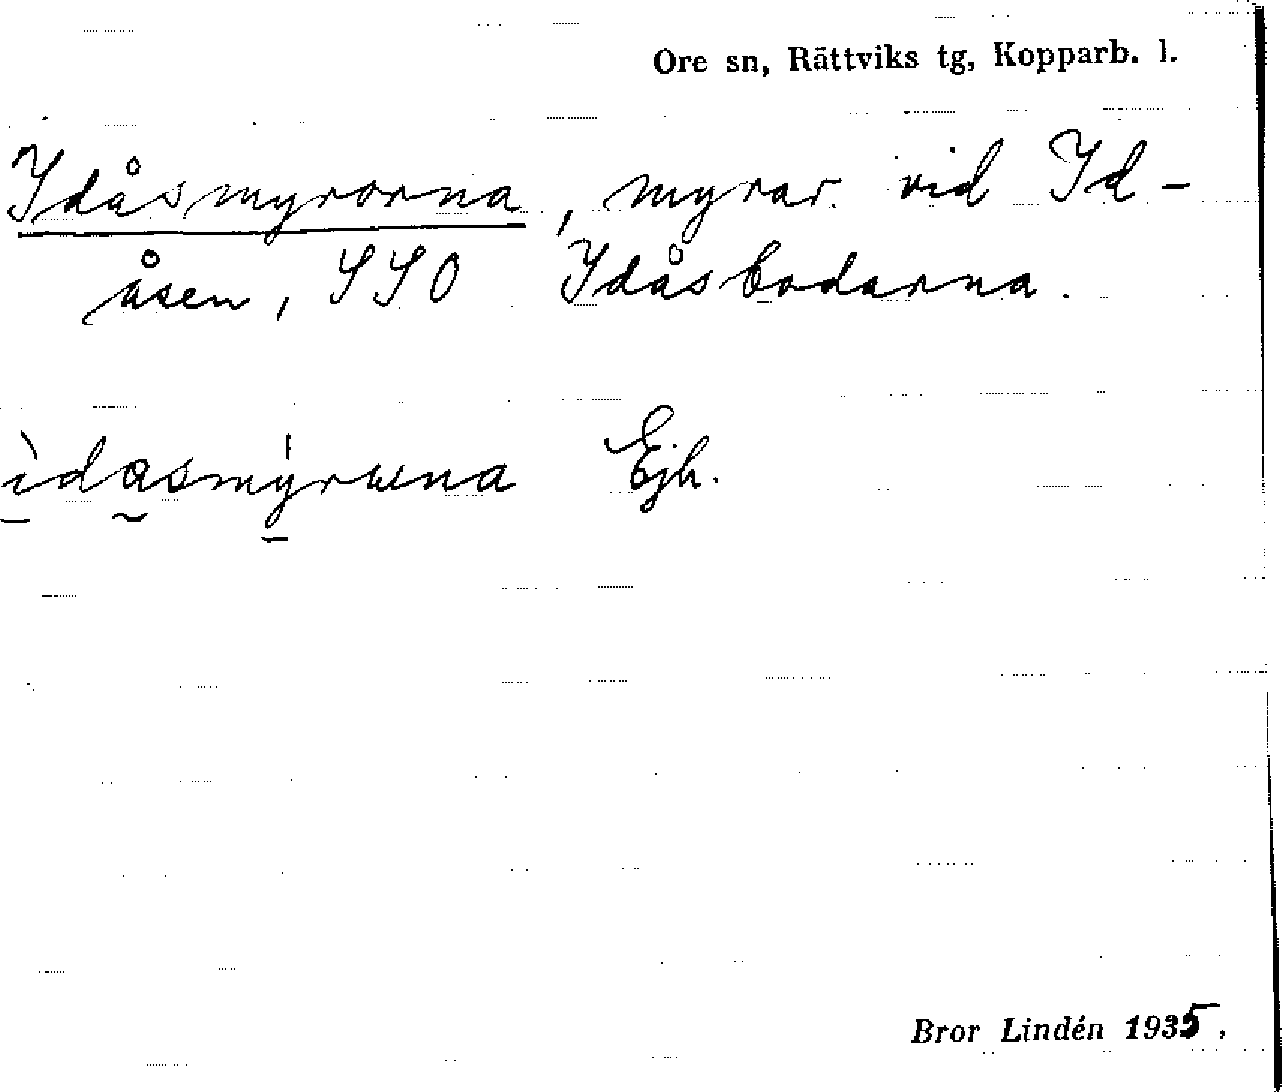 Ore sn, Rättviks tg, Kopparb. l.
Idåsmyrorna, myrar vid Id-
åsen, SSO Idåsbodarna.
ìdasmýruna Ejh.
Bror Lindén 1935.